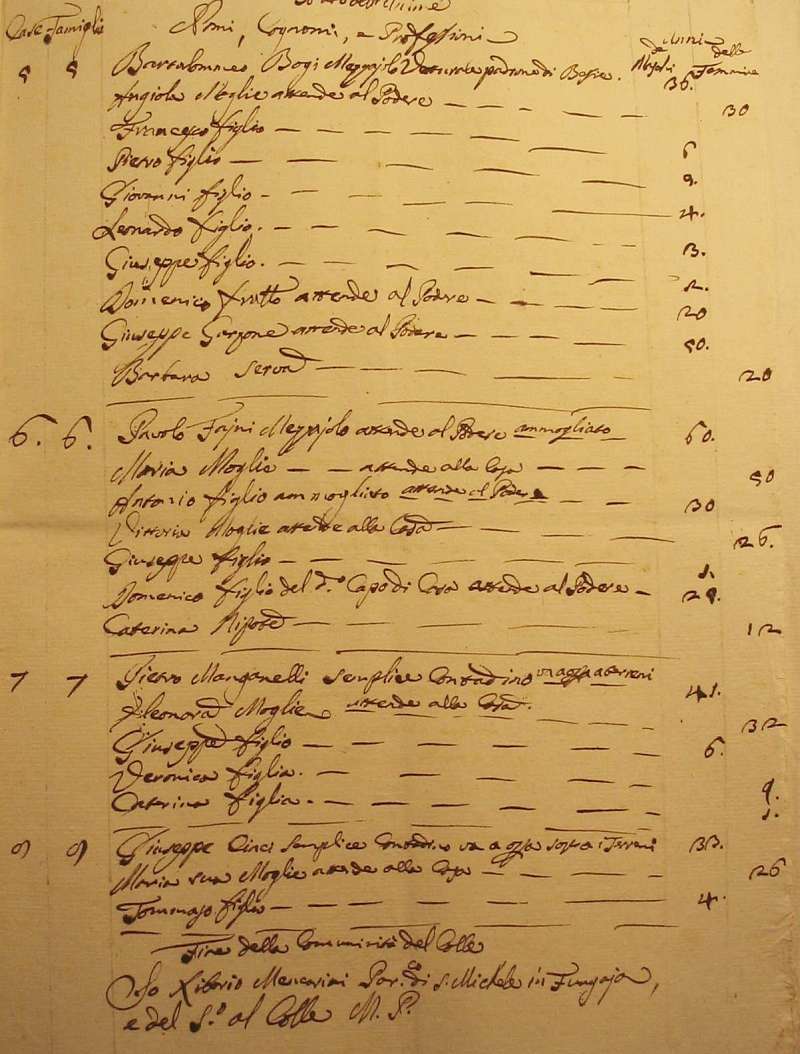 Case Famiglie Nomi, Cognomi, e Professioni Anni de Maschi delle Femmine
5 5 Bartolommeo Bogi Mezzajolo padrone di Bestie. 36.
Angiola Moglie attende al Podere 30
Francesco figlio 6
Pietro figlio 9.
Giovanni figlio 4.
Leonardo figlio. 3.
Giuseppe figlio. 2.
Domenico fratto attende al Podere 20
Giuseppe Garzone attende al Podere 50.
Barbara Serva 20
6. 6. Pavolo Fajni Mezzajolo attende al Podere ammogliato 60.
Maria Moglie attende alla Casa 50
Antonio figlio ammogliato attende al Podere 30
Vittoria Moglie attende alla Casa 26.
Giuseppe figlio 1.
Domenico figlio del d.o Capo di Casa attende al Podere 25.
Caterina Nipote 12
7 7 Pietro Manganelli semplice Contadino va a opra a terreni 41.
Eleonora Moglie attende alla Casa. 32
Giuseppe figlio 6.
Veronica figlia. 9.
Caterina figlia. 1.
9 9 Giuseppe Cinci semplice Contadino va a opra sopra i Terreni 33.
Maria sua Moglie attende alla Casa 26
Tommaso figlio 4.
Fine della Comunità del Colle
Io Liborio Mencarini Par.co di S. Michele in Fungaja,
e del S.o al Colle M. P.